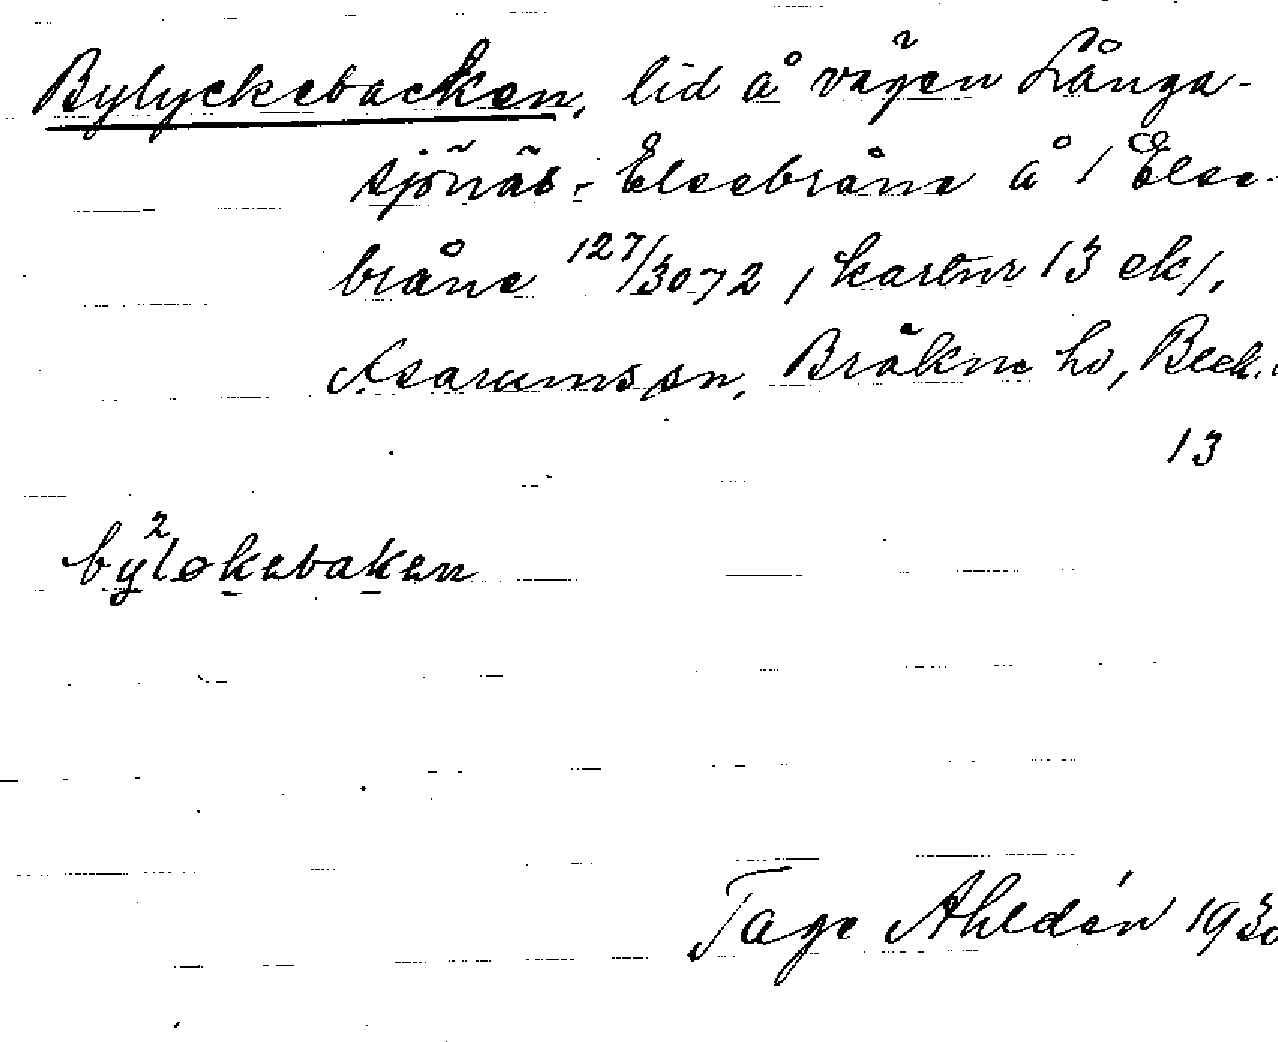 Bylyckebacken, lid å vägen Långa-
sjönäs - Elsebråne å 1 Else-
bråne 127/3072 / kartnr 13 ek/,
Asarums sn, Bräkne hd, Blek.
13
by²løkebaken
Tage Ahldén 1930